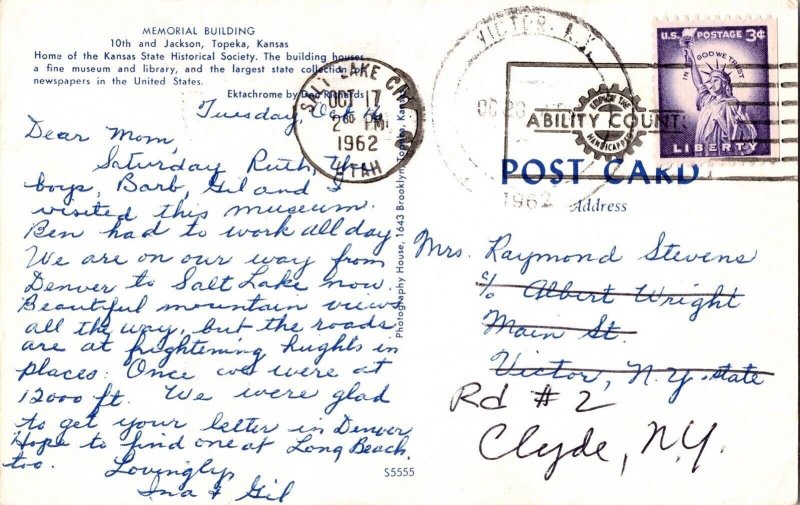 MEMORIAL BUILDING
10th and Jackson, Topeka, Kansas
Home of the Kansas State Historical Society. The building houses
a fine museum and library, and the largest state collection of
newspapers in the United States.
Ektachrome by Don Richards
Tuesday, Oct 16
Dear Mom,
Saturday Ruth, the
boys, Barb, Gil and I
visited this museum.
Ben had to work all day
We are on our way from
Denver to Salt Lake now.
Beautiful mountain views
all the way, but the roads
are at frightening hights in
places. Once we were at
12000 ft. We were glad
to get your letter in Denver
Hope to find one at Long Beach,
too. Lovingly
Ina & Gil
SALT LAKE CITY
OCT 17
2 30 PM
1962
UTAH
Photography House, 1643 Brooklyn, Topeka, Kansas
S5555
VICTOR, N.Y.
OC 20
1962
ABILITY COUNTS
HANDICAPPED
U.S. POSTAGE 3¢
IN GOD WE TRUST
LIBERTY
POST CARD
Address
Mrs. Raymond Stevens
c/o Albert Wright
Main St.
Victor, N.Y. state
Rd # 2
Clyde, N.Y.